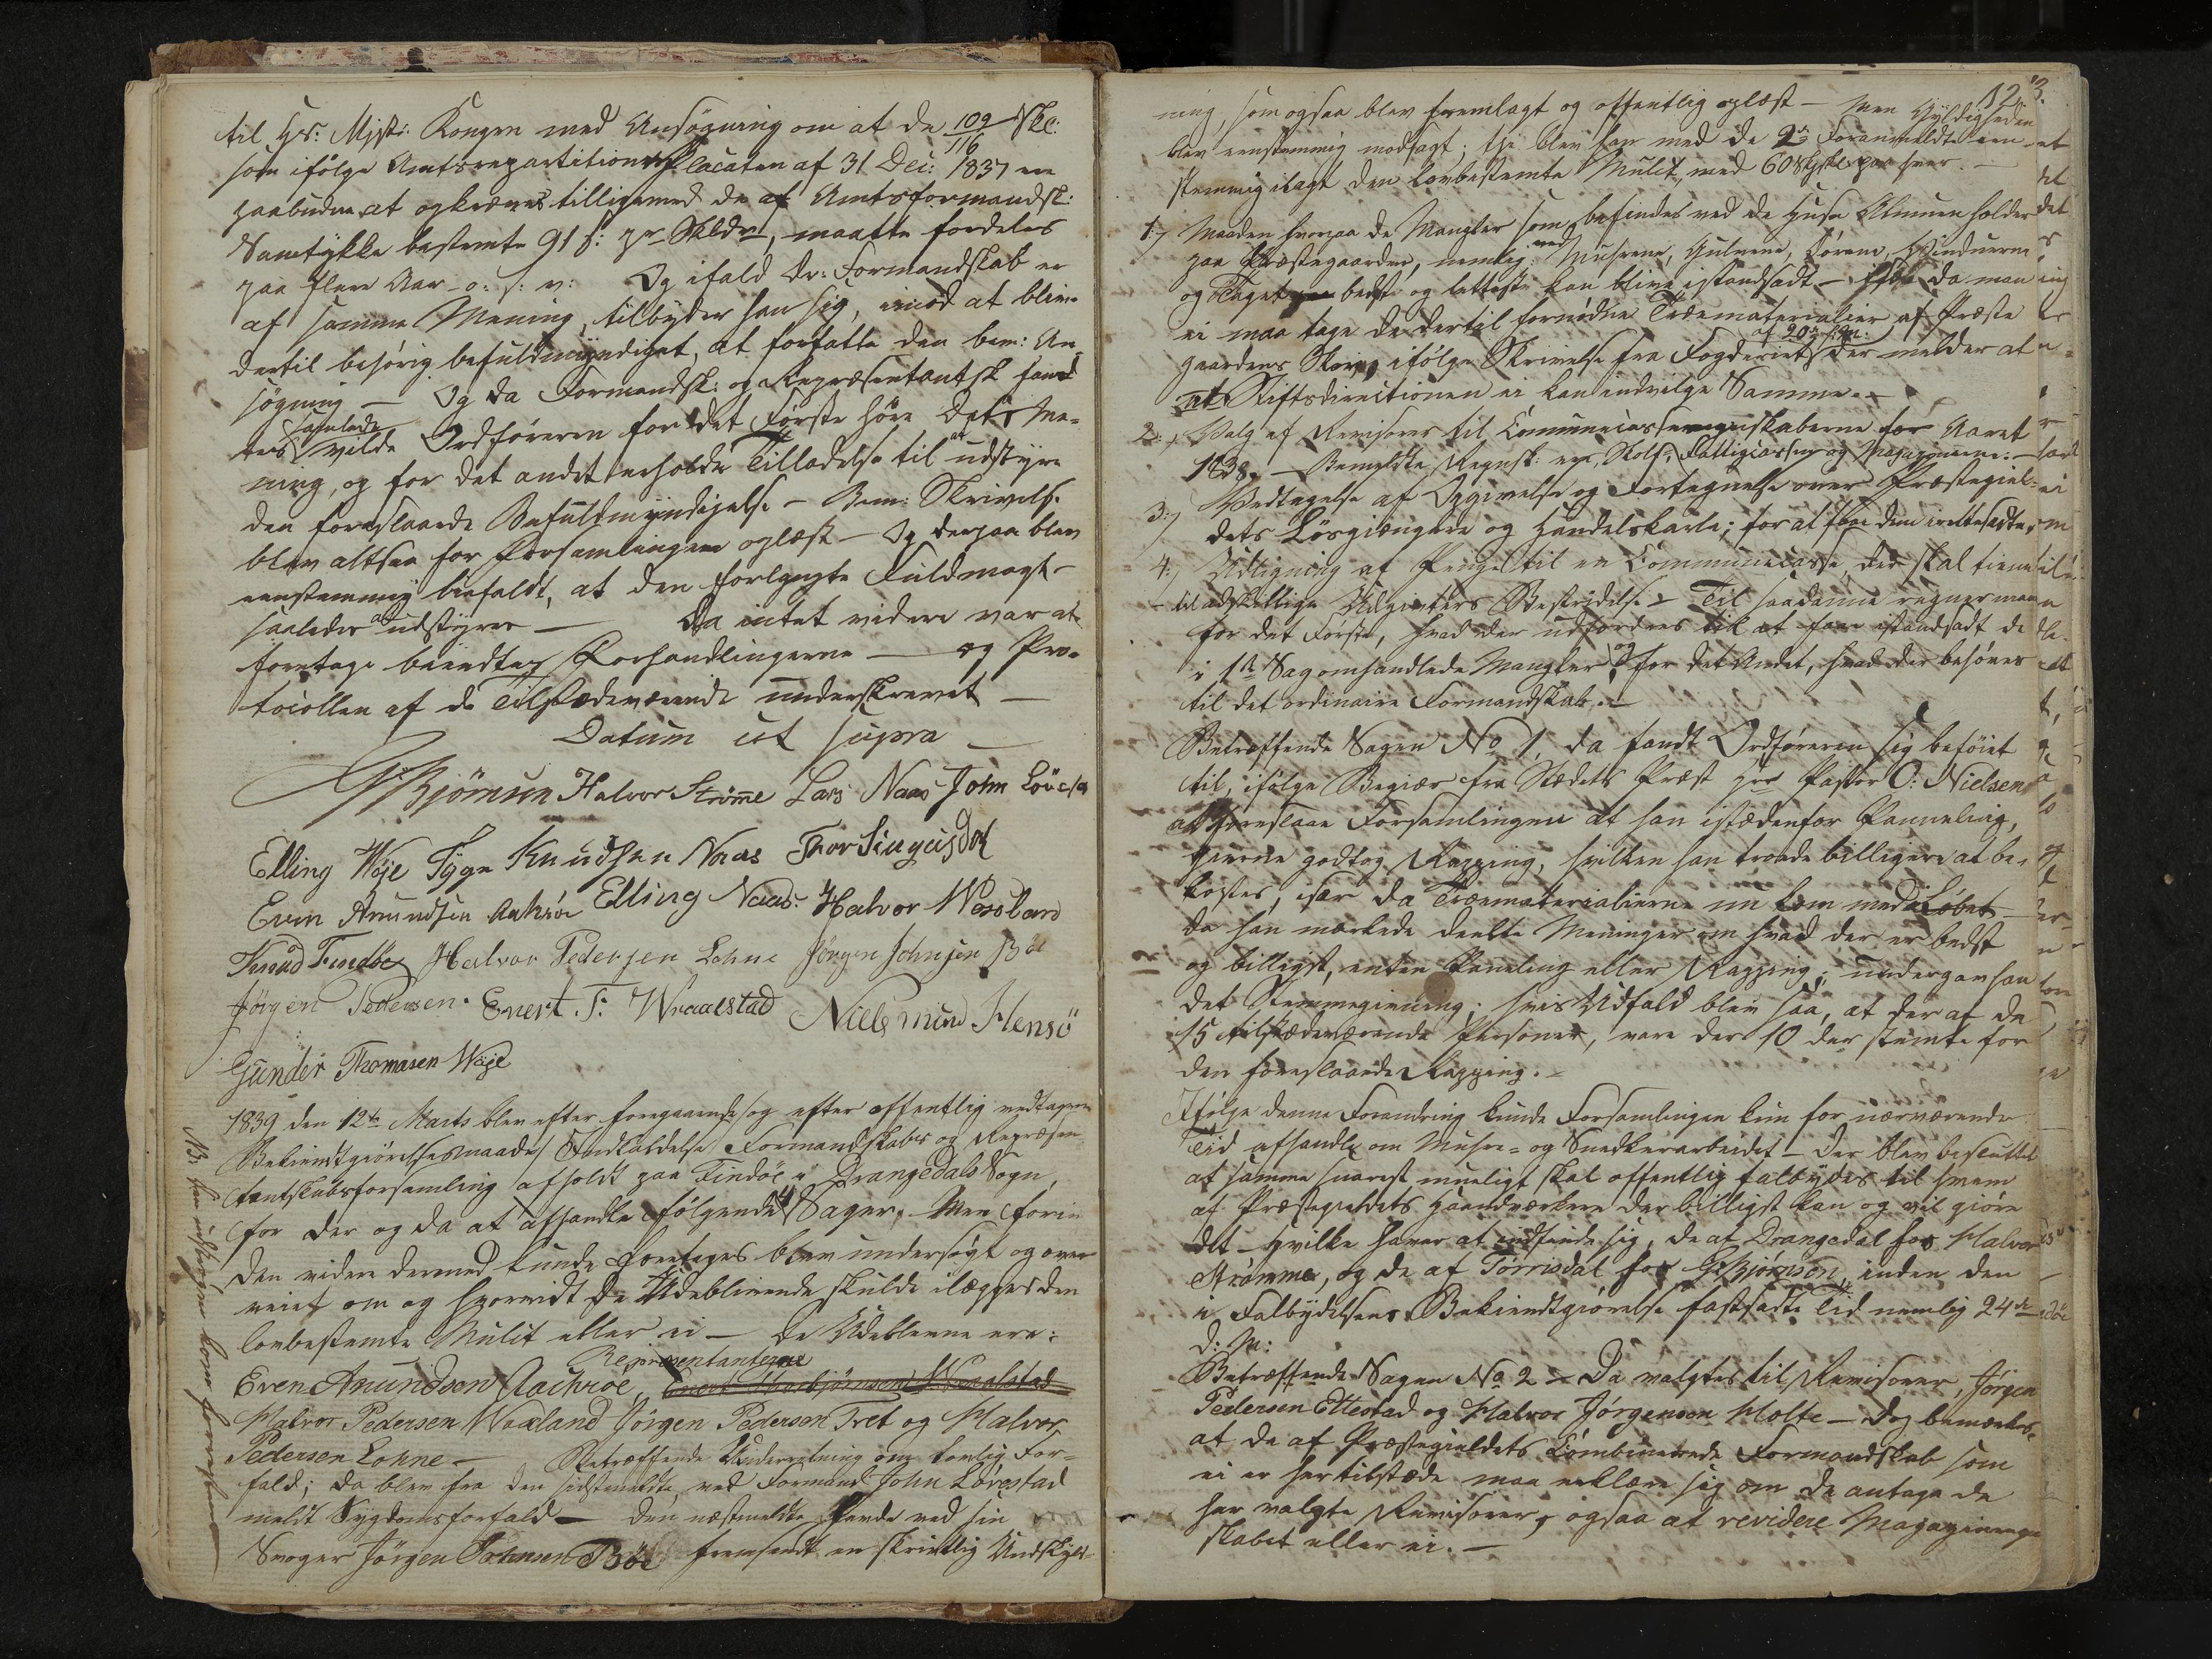 til Hs: Mjst: Kongen med Ansögning om at de 109/116 Skl:
som ifölge Amtsrepartitions Placaten af 31 Dec: 1837 ere
paabudne at opkræves tilligemed de af Amtsformandsk:
Samtykke bestemte 91 s: pr Skldr, maatte fordeles
paa flere Aar o: s: v: Og ifald Dr: Formandskab er
af samme Mening, tilbyder han sig, imod at blive
dertil behörig befuldmyndiget, at forfatte den bem: An-
sögning — Og da Formandsk: og Repræsentantsk
samlede
vilde Ordföreren for det Förste höre dets Me-
ning, og for det andet erholde Tilladelse til at udstyre
den foreslaaede Befuldmyndigelse — Bem: Skrivelse
blev altsaa for Forsamlingen oplæst — Og derpaa blev
eenstemmig biefaldt, at den forlangte Fuldmagt
saaledes udstyres — Da intet videre var at
foretage beendtes Forhandlingerne — og Pro-
tocollen af de Tilstædeværende underskrevet —
Datum ut supra
G Bjömsen Halvor Strömme Lars Naas John Löves
Elling Wöje Tÿge Knudsen Naas Thor
Even Anundsen Aakröe Elling Naas. Halvor Woxland
Knud Findöe Halvor Pedersen Lohne Jörgen Johnsen Böe
Jörgen Pedersen. Enert T: Wraalstad Niels
Gunder Thomasen Wöje
1839 den 12te Marts blev efter foregaaende/og efter offentlig vedtagen
Bekiendtgiörelsesmaade/ Indkaldelse Formandskabs og Repræsen-
tantskabsforsamling afholdt paa Findöe i Drangedals Sogn,
for der og da at afhandle fölgende 4 Sager. Men foren
den videre dermed kunde foretages blev undersögt og over-
veiet om og hvorvidt de Udeblivende skulde ilægges den
lovbestemte Mulct eller ei — de Udeblevne ere:
Repræsentanterne
Even Anundsen Aachröe, Enert Thorbjörnsen Wraalstad
Halvor Pedersen Woxland Jörgen Pedersen Tret og Halvor
Pedersen Lohne — Betræffende Underretning om lovlig For-
fald; da blev fra den sidstmeldte, ved Formand John Lövestad
meldt Sygdomsforfald — den næstmeldte havde ved sin
Svoger Jörgen Johnsen Böe fremsendt en skrivtlig Undskyld-
12
ning, som ogsaa blev fremlagt og offentlig oplæst — Men Gyldigheden
blev eenstemmig modsagt; thi blev han med de 2de Foranmeldte een-
stemmig ilagt den lovbestemte Mulct, med 60 Skskl paa hver. —
1:) Maaden hvorpaa de Mangler som befindes ved de Huse Almuen holder
paa Præstegaarden, nemlig: ved Muhrene, Gulvene, Dörene, Vinduerne
og Taget bedst og lettest kan blive istandsadt — da man
ei maa tage de dertil fornödne Træmaterialier af Præste
af 20de f: M:
gaardens Skov, ifölge Skrivelse fra Fogderiet der melder at
at Stiftsdirectionen ei kan indvilge Samme. —
2:) Valg af Revisorer til Communecasseregnskaberne for Aaret
1838. — Bemeldte Regnsk: ere, Skole, Fattigcassen og Magazinerne. —
3:) Vedtagelse af Opgivelse og Fortegnelse over Præstegiel-
dets Lösgiængere og Handelskarle; for at faae dem irettesadte,
4:) Udligning af Penge til en Communecasse, der skal tiene
til adskillige Udgivters Bestridelse — Til saadanne regner man
for det Förste, hvad der udfordres til at faae istandsadt de
i 1ste Sag omhandlede Mangler, og for det Andet, hvad der behöves
til det ordinaire Formandskab. —
Betræffende Sagen No 1, da fandt Ordföreren sig beföiet
til, ifölge Begiær fra Stædets Præst Hr Pastor O: Nielsen
at foreslaae Forsamlingen at han istædenfor Panneling,
gierne godtog Rapping, hvilken han troede billigere at be-
kostes, især da Træmaterialierne nu kom med i Löbet —
da han mærkede deelte Meninger om hvad der er bedst
og billigst, enten Paneling eller Rapping; undergav han
det Stemmegivning; hvis Udfald blev saa, at der af de
15 tilstædeværende Personer, vare der 10 der stemte for
den foreslaaede Rapping. —
Ifölge denne Forandring kunde Forsamlingen kun for nærværende
Tid afhandle om Muhre- og Snedkerarbeidet — Der blev besluttet
at samme snarest mueligt skal offentlig falbydes til hvem
af Præstegieldets Haandværkere der billigst kan og vil giöre
det — Hvilke haver at indfinde sig, de af Drangedal hos Halvor
Strömme, og de af Törrisdal hos G: Björnson, inden den
i Falbydelsens Bekiendtgiörelse fastsadte Tid nemlig 24de
d: M:
Betræffende Sagen No 2 — Da valgtes til Revisorer, Jörgen
Pedersen Ettestad og Halvor Jörgensen Holte — dog bemærkes,
at de af Præstegieldets Combinerede Formandskab som
ei er her tilstæde maa erklære sig om de antage de
her valgte Revisorer, ogsaa at revidere Magazinregn
skabet eller ei. —